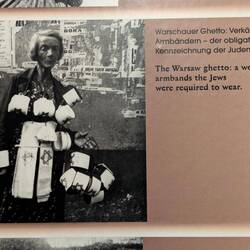 Warschauer Ghetto: Verkä
Armbändern – der obligat
Kennzeichnung der Juden
The Warsaw ghetto: a wo
armbands the Jews
were required to wear.